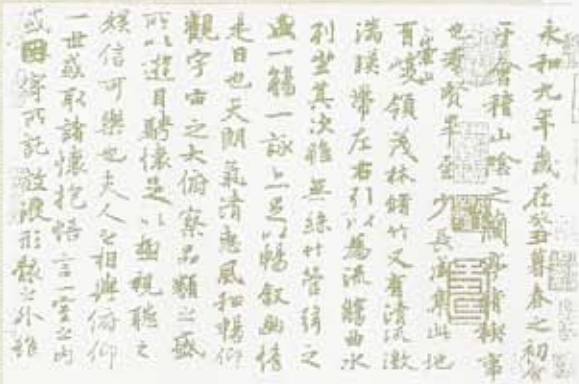 永和九年歲在癸丑暮春之初會
于會稽山陰之蘭亭脩稧事
也羣賢畢至少長咸集此地
有崇山峻領茂林脩竹又有清流激
湍暎帶左右引以為流觴曲水
列坐其次雖無絲竹管絃之
盛一觴一詠亦足以暢敘幽情
是日也天朗氣清惠風和暢仰
觀宇宙之大俯察品類之盛
所以遊目騁懷足以極視聽之
娛信可樂也夫人之相與俯仰
一世或取諸懷抱悟言一室之內
或因寄所託放浪形骸之外雖